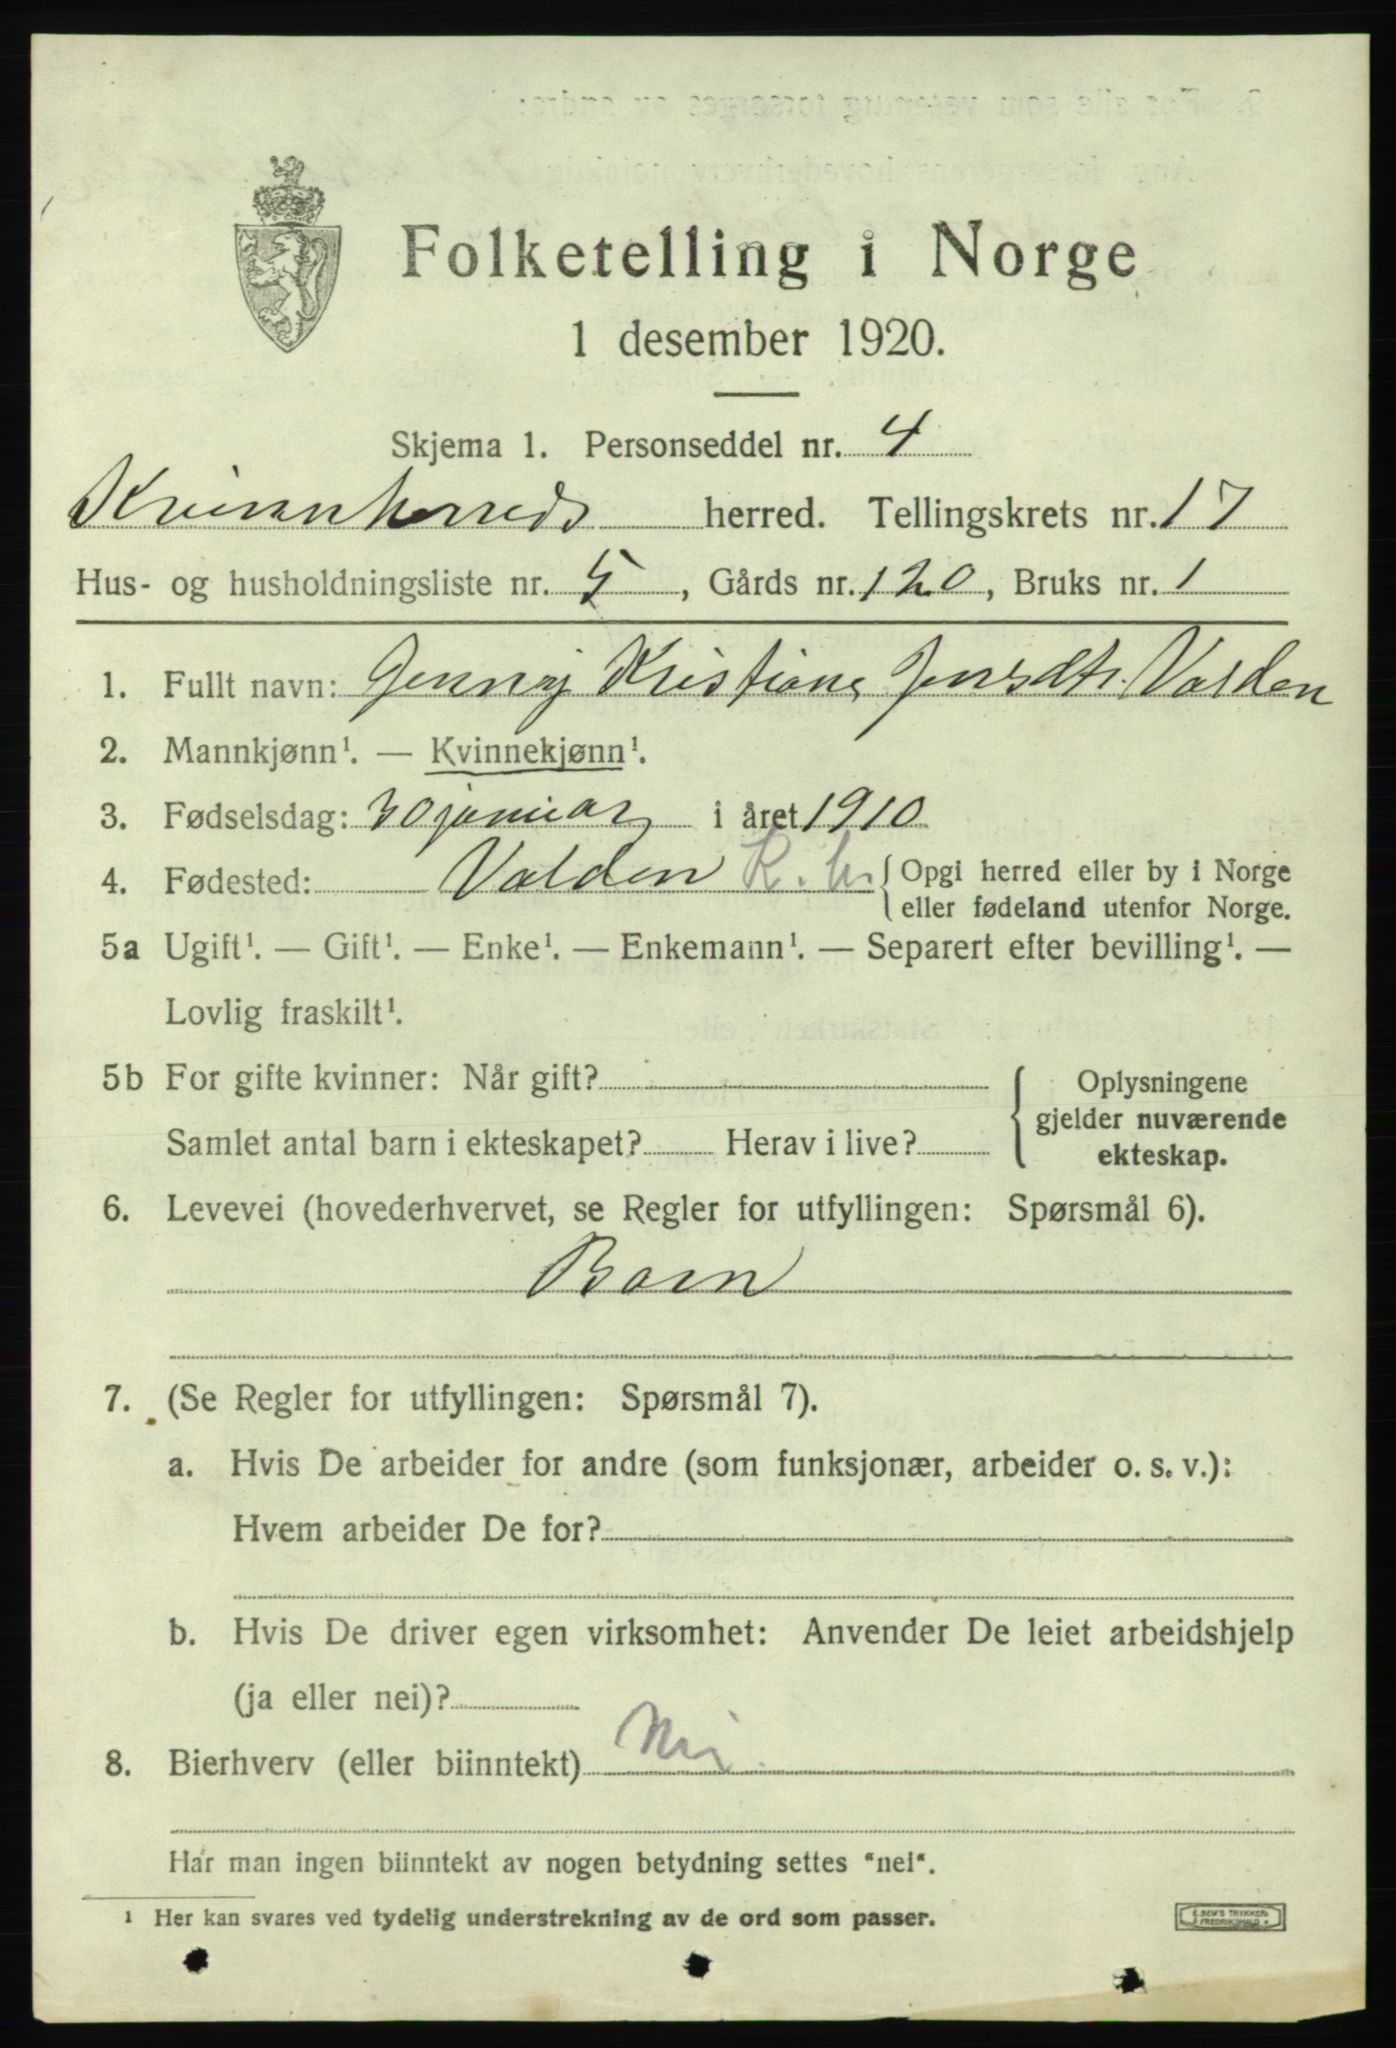 Folketelling i Norge
1 desember 1920.
Skjema 1. Personseddel nr. 4
Kvinnherreds herred. Tellingskrets nr. 17
Hus- og husholdningsliste nr. 5, Gårds nr. 120, Bruks nr. 1
1. Fullt navn: Jenny Kristiane Jensdtr. Valden
2. Mannkjønn¹. — Kvinnekjønn¹.
3. Fødselsdag: 30 januar i året 1910
4. Fødested: Valden K.h. { Opgi herred eller by i Norge
eller fødeland utenfor Norge.
5a Ugift¹. — Gift¹. — Enke¹. — Enkemann¹. — Separert efter bevilling¹. —
Lovlig fraskilt¹.
5b For gifte kvinner: Når gift? { Oplysningene
gjelder nuværende
Samlet antal barn i ekteskapet? Herav i live? ekteskap.
6. Levevei (hovederhvervet, se Regler for utfyllingen: Spørsmål 6).
Barn
7. (Se Regler for utfyllingen: Spørsmål 7).
a. Hvis De arbeider for andre (som funksjonær, arbeider o. s. v.):
Hvem arbeider De for?
b. Hvis De driver egen virksomhet: Anvender De leiet arbeidshjelp
(ja eller nei)?
8. Bierhverv (eller biinntekt) Nei
Har man ingen biinntekt av nogen betydning settes "nei".
¹ Her kan svares ved tydelig understrekning av de ord som passer.